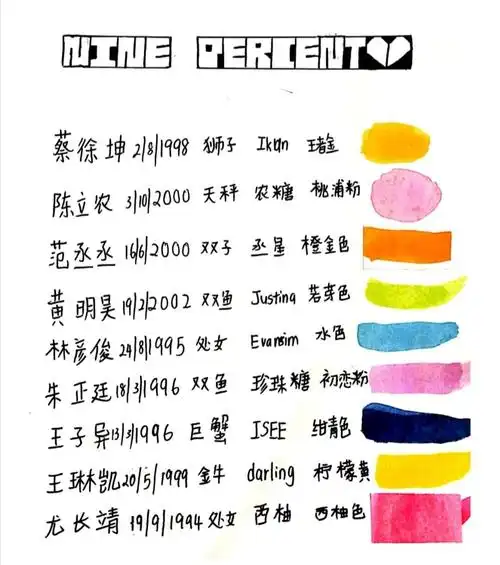 NINE PERCENT
蔡徐坤 2/8/1998 狮子 Ikun 瑭金
陈立农 3/10/2000 天秤 农糖 桃浦粉
范丞丞 16/6/2000 双子 丞星 橙金色
黄明昊 19/2/2002 双鱼 Justing 若芽色
林彦俊 24/8/1995 处女 Evansim 水色
朱正廷 18/3/1996 双鱼 珍珠糖 初恋粉
王子异 13/3/1996 巨蟹 ISEE 绀青色
王琳凯 20/5/1999 金牛 darling 柠檬黄
尤长靖 19/9/1994 处女 西柚 西柚色